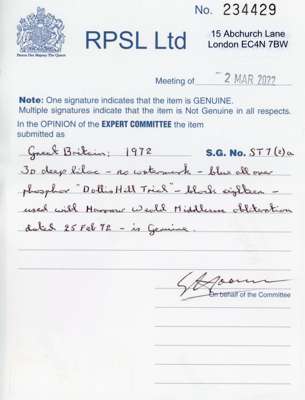 No. 234429
RPSL Ltd
15 Abchurch Lane
London EC4N 7BW
Patron Her Majesty The Queen
Meeting of - 2 MAR 2022
Note: One signature indicates that the item is GENUINE.
Multiple signatures indicate that the item is Not Genuine in all respects.
In the OPINION of the EXPERT COMMITTEE the item
submitted as
Great Britain; 1972 S.G. No. ST7(2)a
deep lilac - no watermark - blue all over
phosphor "Dollis Hill Trial" - block eighteen -
used with Harrow Weald Middlesex obliteration
dated Feb 72 - is Genuine.
On behalf of the Committee